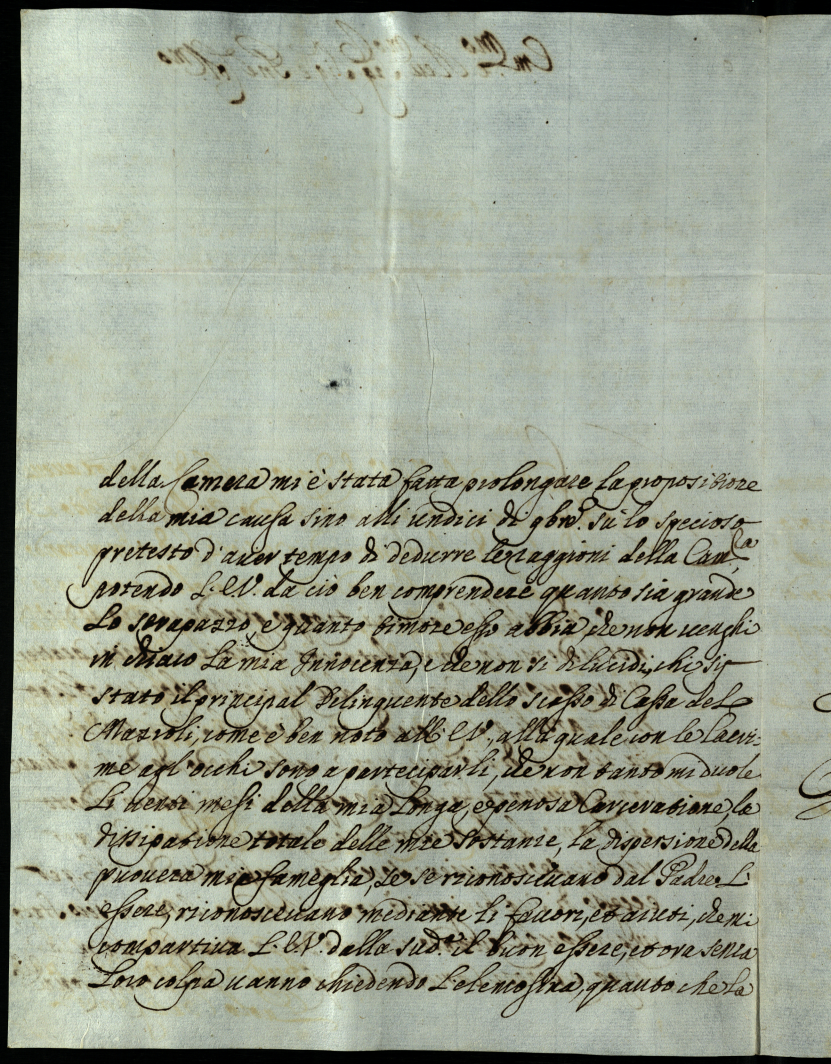 della Camera mi è stata fatta prolongare la propositione
della mia causa sino alli undici di 9bre. sù lo specioso
pretesto d'aver tempo di dedurre le raggioni della Cam.ra
potendo L'E.V. da ciò ben comprendere quanto sia grande
Lo strapazzo, e quanto timore esso abbia, che non venghi
in chiaro La mia Innocenza, e che non si dilucidi, chi sij
stato il principal Delinquente dello scasso di Cassa del
Mazzoli, come è ben noto all'E.V., alla quale con le Lacri-
me agl'occhi sono a parteciparli, che non tanto mi duole
Li venti mesi della mia Longa, e penosa Carceratione, la
dissipatione totale delle mie sostanze, La dispersione della
povera mia fameglia, se se riconoscevano dal Padre L'
essere, riconoscevano mediante li favori, et aiuti, che mi
compartiva L'E.V. dalla sud.a il buon essere, et ora senza
Loro colpa vanno chiedendo L'elemosina, quanto che La